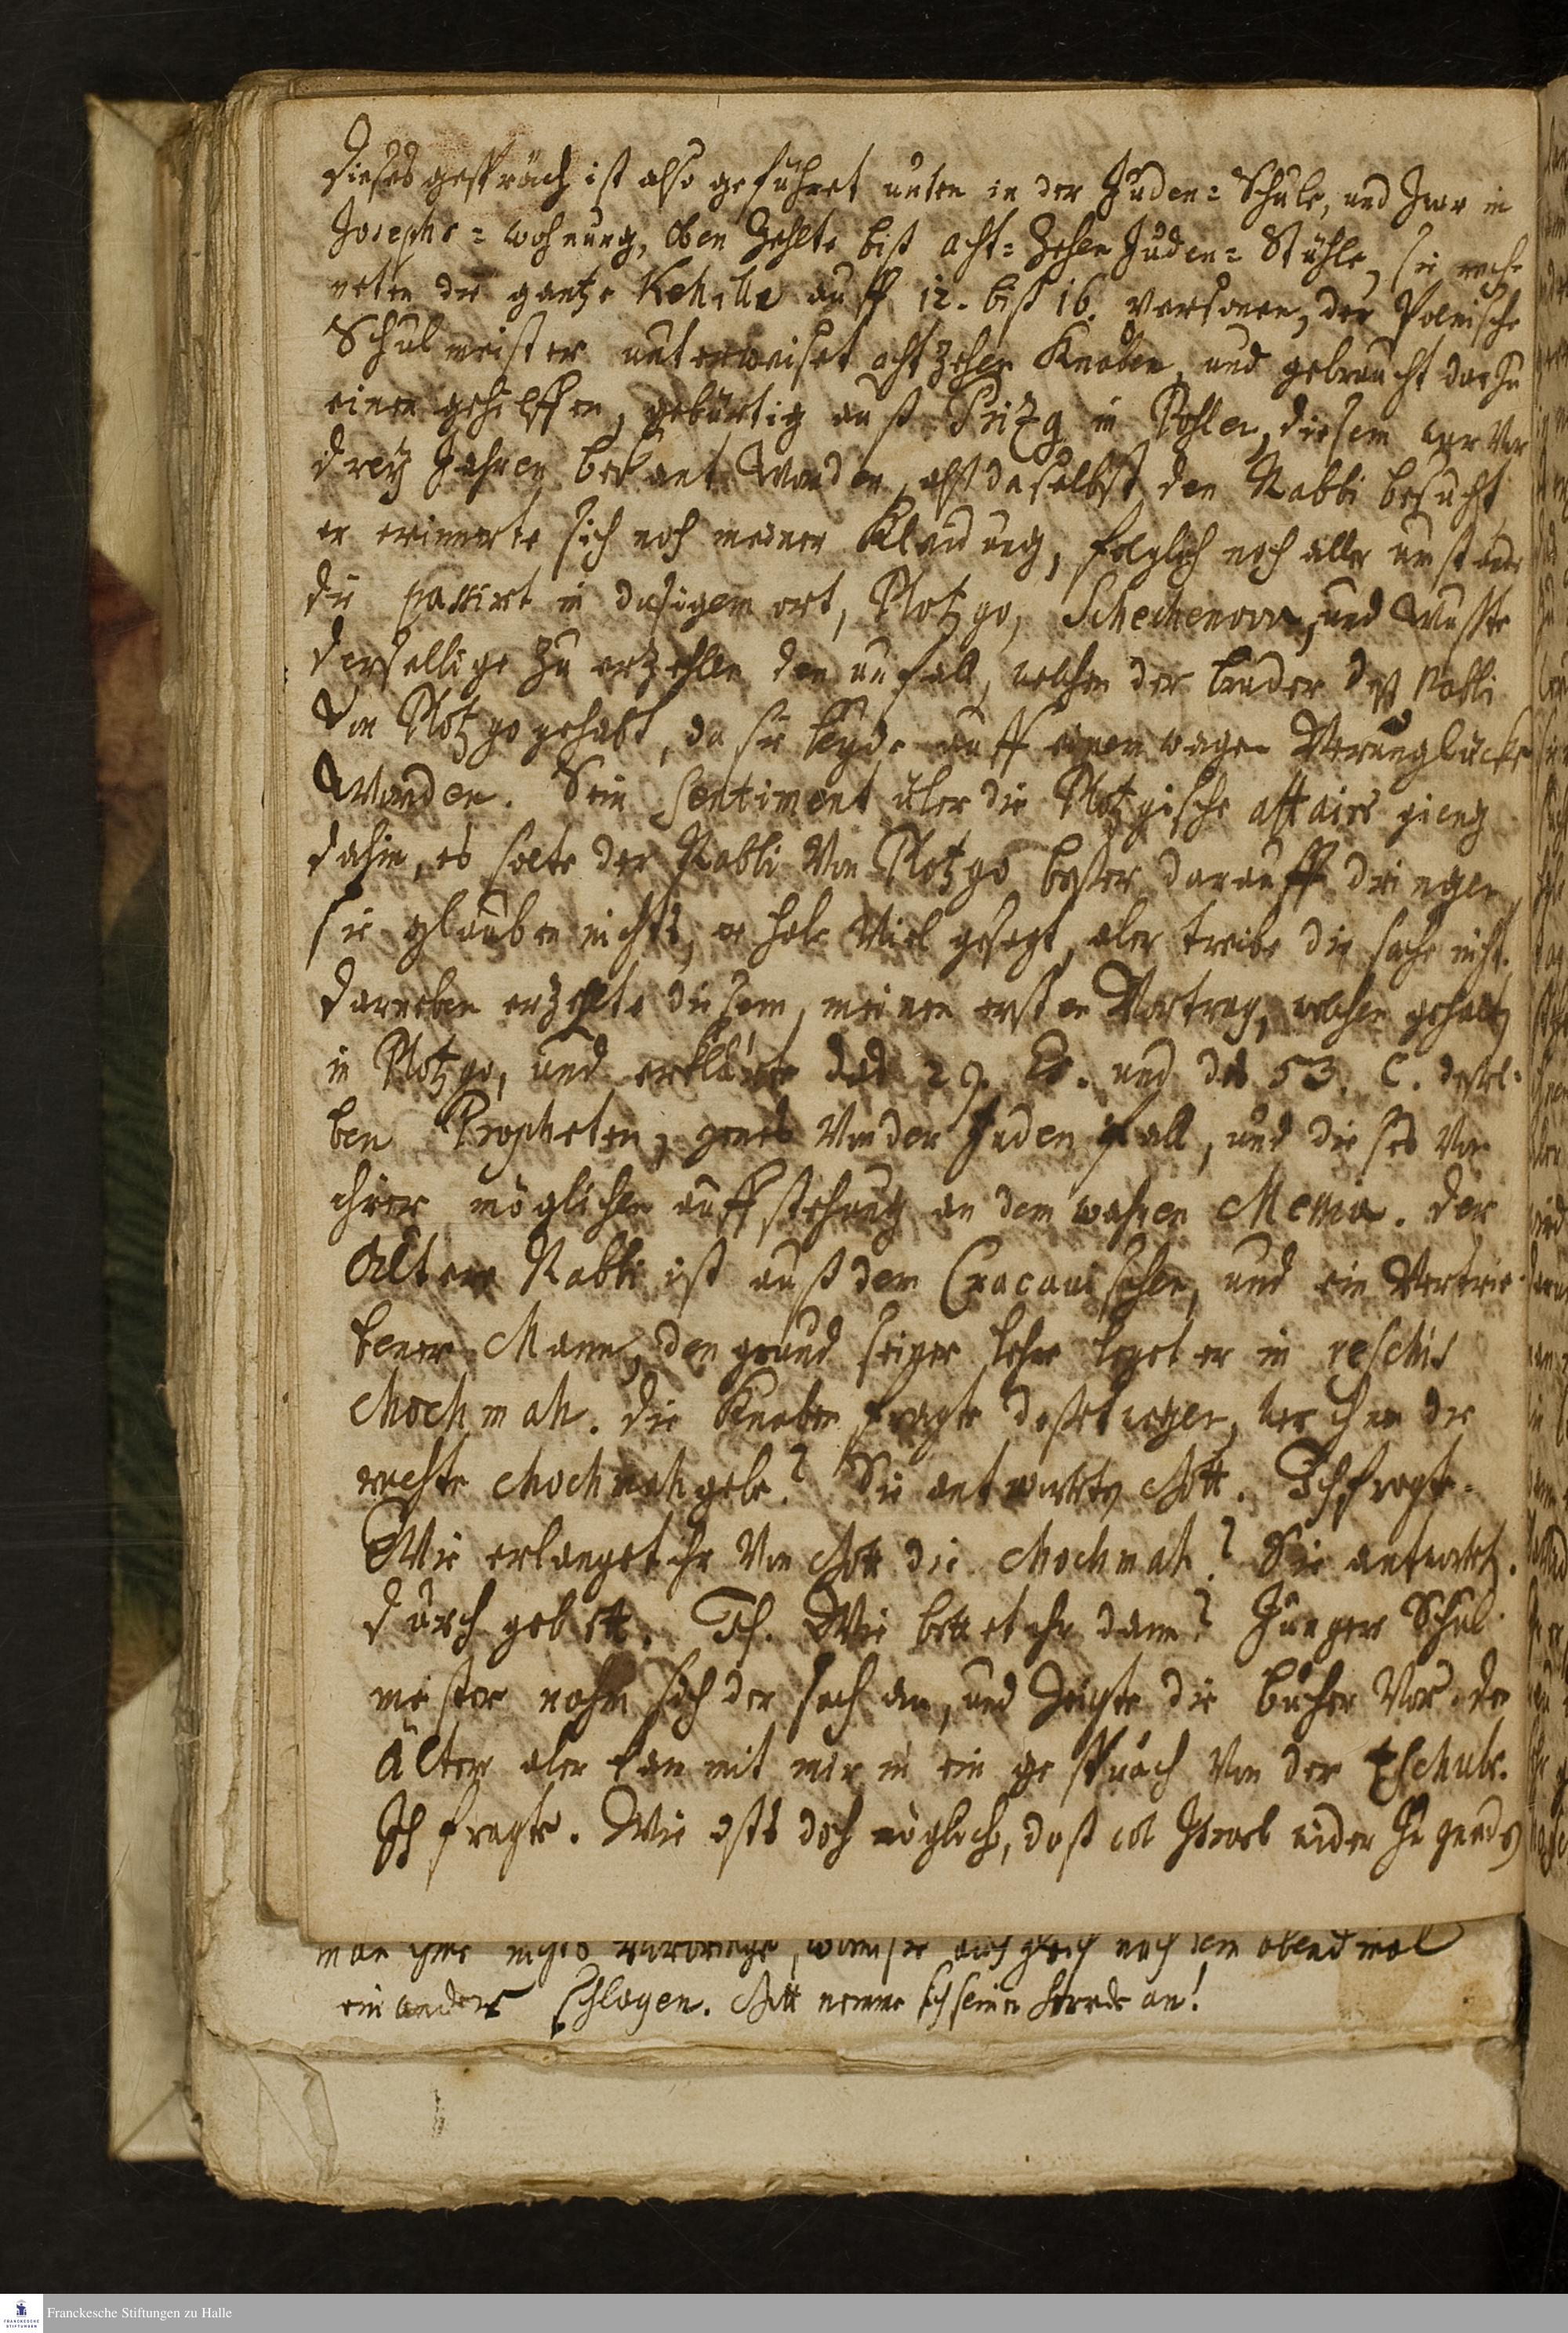 Dieses gespräch ist also geführet unten in der Juden= Schule, und zwar in
Josephs= wohnung, oben zehlte biß acht= zehen Juden= Stühle, sie rech
neten die gantze Kehilla auff 12. biß 16. personen, der Polnische
Schulmeister unterweiset achtzehen Knaben, und gebraucht darzu
einen gehilffen, gebürtig auß in Pohlen, diesem war vor
drey Jahren bekant worden, alß daselbst den Rabbi besucht
er erinnerte sich noch meiner Kleidung, folglich noch aller umstände
die passirt in dasigem ort, Plotzgo, und wuste
derselbige zu erzehlen den unfall, welchen der bruder deß Rabbi
von Plotzgo gehabt, da sie beyde auff einem wagen verunglückt
worden. Sein Sentiment über die Plotzgische affaires gieng
dahin, es solte der Rabbi von Plotzgo besser darauff dringen,
sie glauben nichts, er habe viel gesagt, aber treibe die sache nicht.
darneben erzehlte diesem, meinen ersten Vortrag, welchen gehalten
in Plotzgo, und erklärte das 29. Es. und das 53. C. dessel=
ben Propheten, jenes von der Juden fall, und dieses von
ihrer möglichen auffstehung an dem wahren Messia. der
ältere Rabbi ist auß dem Cracauischen, und ein vertrie=
bener Mann, den grund seiner lehre leget er in reschis
chochmah. die Knaben fragte deßwegen, wer ihnen die
rechte chochmah gebe? Sie antworteten Gott. Ich fragte.
Wie erlanget ihr von Gott die chochmah? Sie antwort.
durch gebett. Ich. Wie bettet ihr dann? Junger Schul
meister nahm sich der sach an, und zeigte die bücher vor. der
älter aber kam mit mir in ein gespräch von der tschube.
Ich fragte. Wie ists doch möglich, daß col Israel wider zu gnaden
man ihne nichts vorbringe, auch gleich nach dem abendmal
einander schlagen. Gott nemme sich seiner heerde an!
Franckesche Stiftungen zu Halle
FRANCKESCHE
STIFTUNGEN